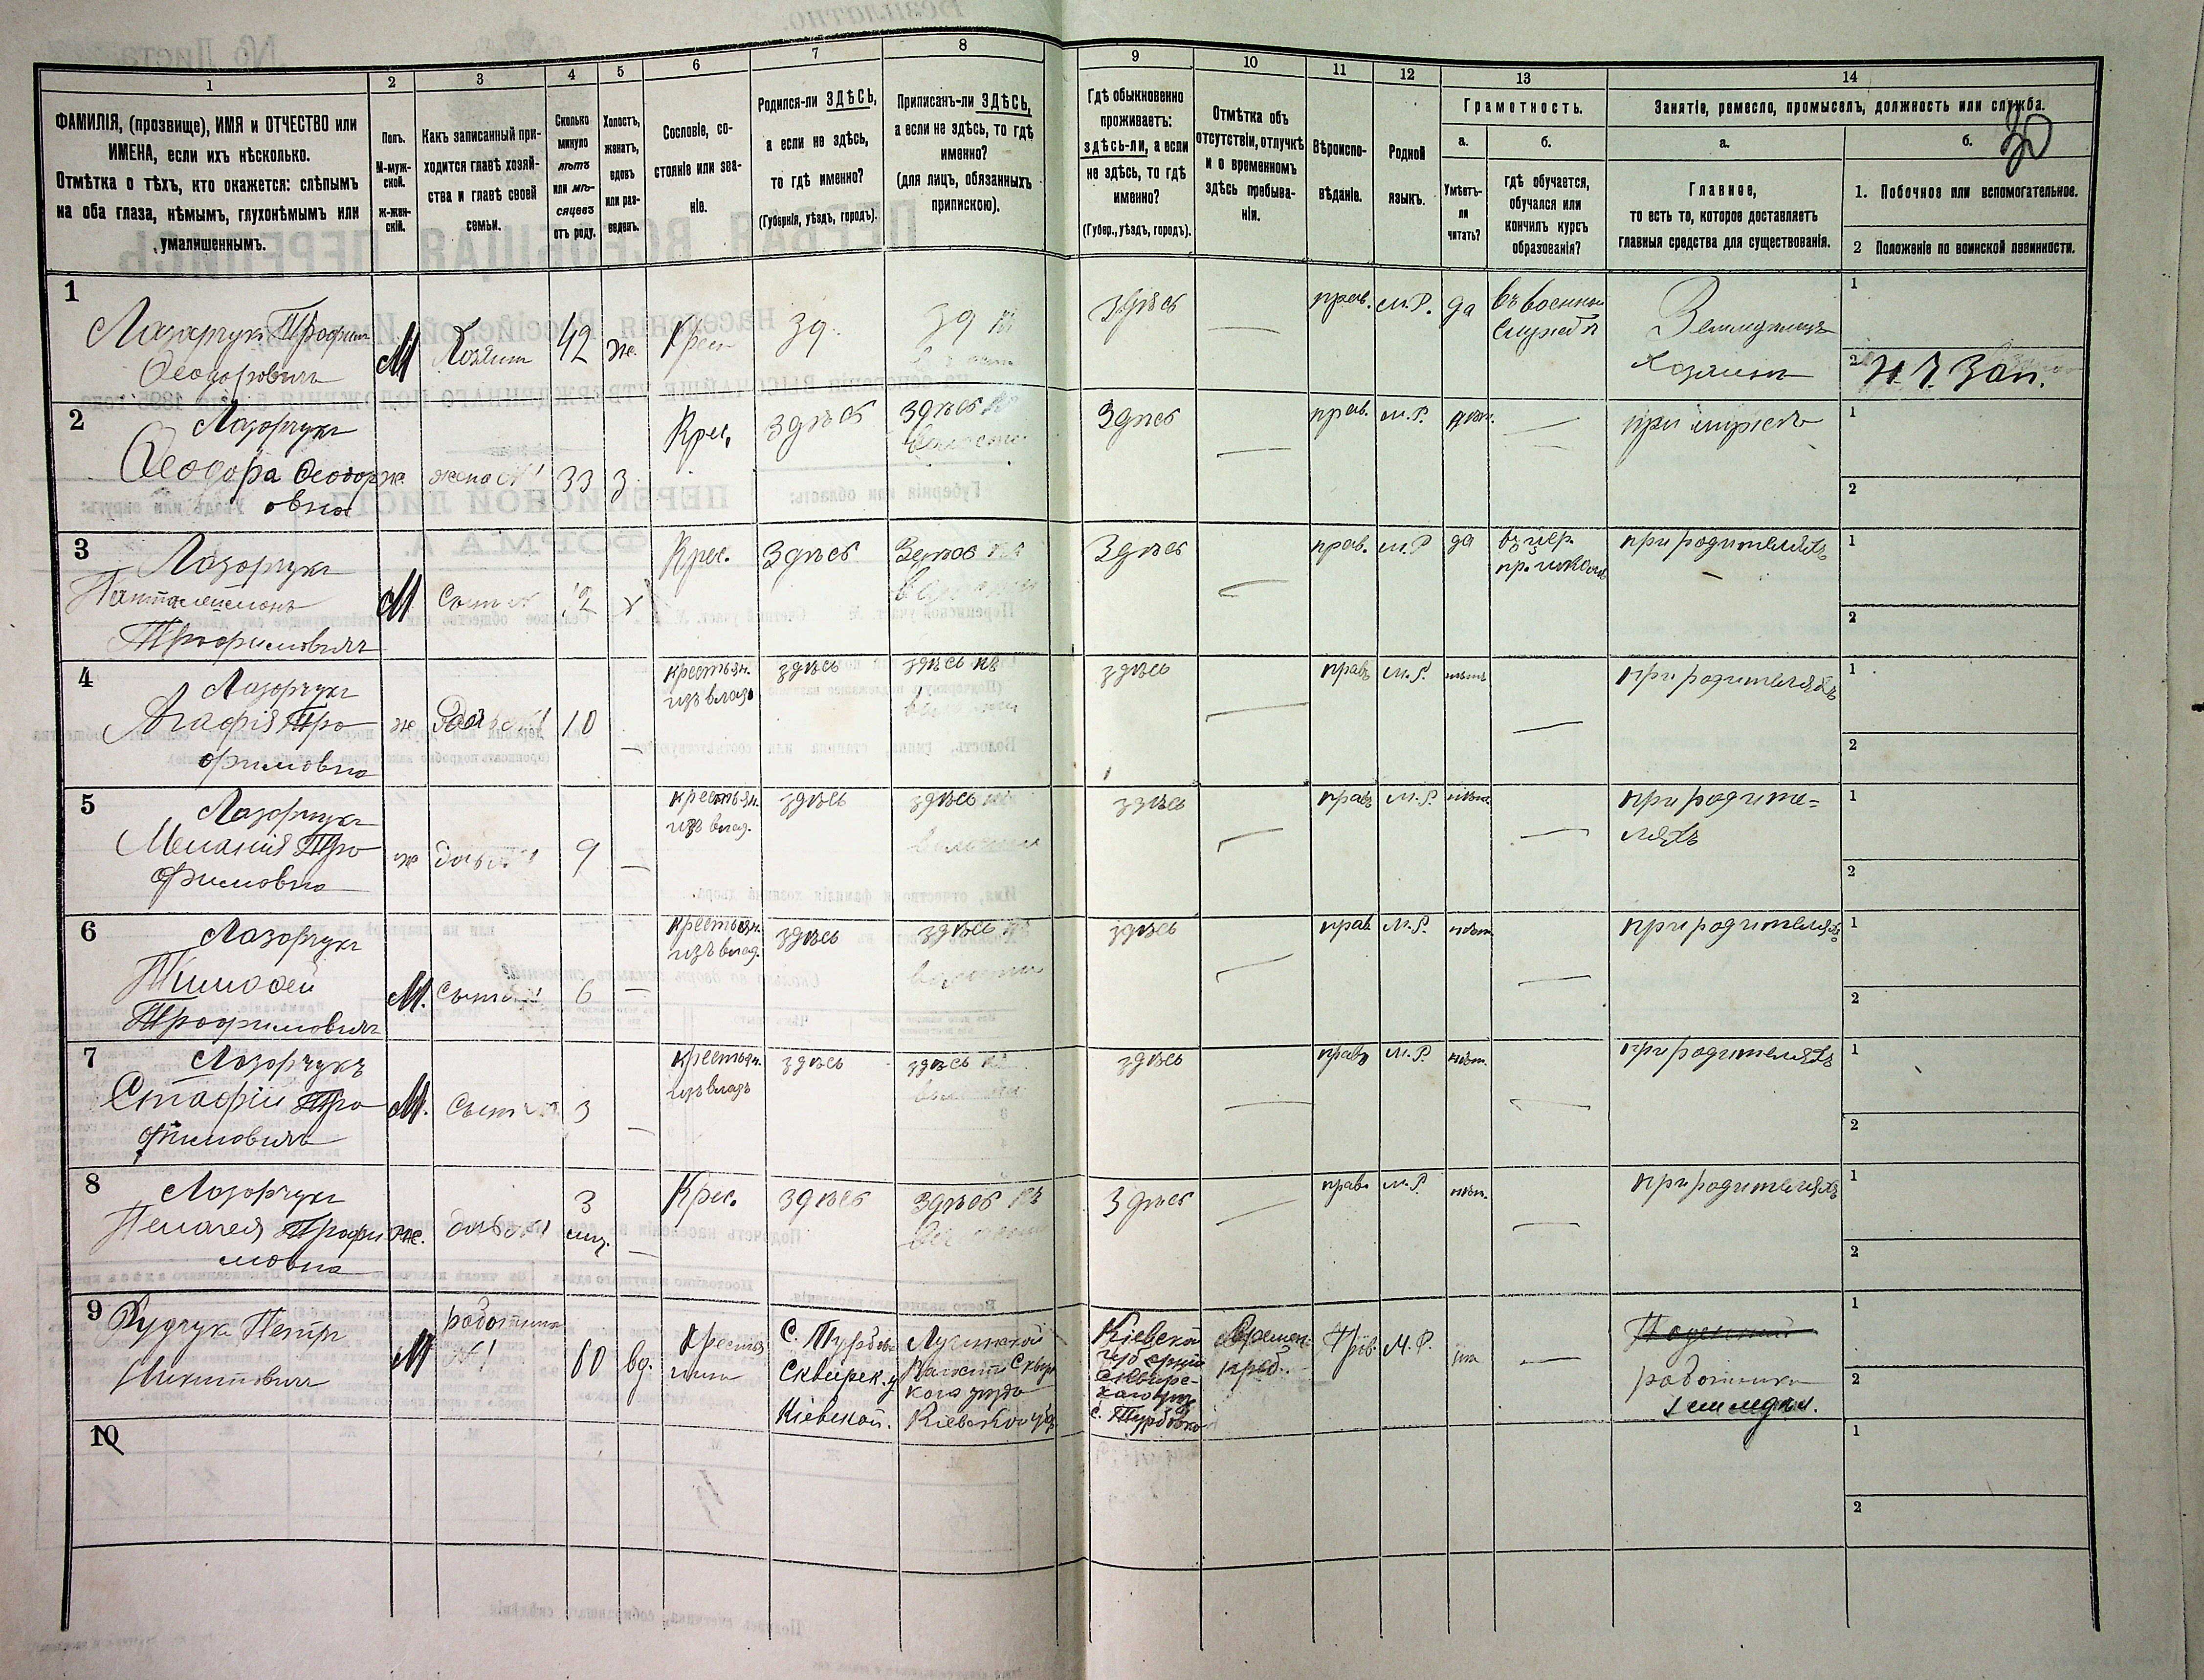 1
2
3
4
5
6
7
8
9
10
11
12
13
14
ФАМИЛІЯ, (прозвище), ИМЯ и ОТЧЕСТВО или
ИМЕНА, если ихъ нѣсколько.
Отмѣтка о тѣхъ, кто окажется: слѣпымъ
на оба глаза, нѣмымъ, глухонѣмымъ или
умалишеннымъ.
Полъ.
М-муж-
ской.
Ж-жен-
скій.
Какъ записанный при-
ходится главѣ хозяй-
ства и главѣ своей
семьи.
Сколько
минуло
лѣтъ
или мѣ-
сяцевъ
отъ роду.
Холостъ,
женатъ,
вдовъ
или раз-
веденъ.
Сословіе, со-
стояніе или зва-
ніе.
Родился-ли ЗДѢСЬ,
а если не здѣсь,
то гдѣ именно?
(Губернія, уѣздъ, городъ).
Приписанъ-ли ЗДѢСЬ,
а если не здѣсь, то гдѣ
именно?
(для лицъ, обязанныхъ
припискою).
Гдѣ обыкновенно
проживаетъ:
здѣсь-ли, а если
не здѣсь, то гдѣ
именно?
(Губер., уѣздъ, городъ).
Отмѣтка объ
отсутствіи, отлучкѣ
и о временномъ
здѣсь пребыва-
ніи.
Вѣроиспо-
вѣданіе.
Родной
языкъ.
Грамотность.
а.
Умѣетъ-
ли
читать?
б.
гдѣ обучается,
обучался или
кончилъ курсъ
образованія?
Занятіе, ремесло, промыселъ, должность или служба.
30
а.
Главное,
то есть то, которое доставляетъ
главныя средства для существованія.
б.
1. Побочное или вспомогательное.
2 Положеніе по воинской повинности.
1
Лазарчукъ Трофим
Ѳеодоровичъ
М
Хозяин
42
ж.
Крес
зд.
зд
Здѣсь
прав.
М.Р.
да
въ военной
службѣ
Земледѣлецъ
хозяинъ
1
2
Н. Ч. Зап.
2
Лазорчукъ
Ѳеодора Ѳеодор
овна
ж.
жена №1
33
з.
Крес.
Здѣсь
Здѣсь
Здѣсь
прав.
М.Р.
при мужѣ
1
2
3
Лазорчукъ
Пантелеймонъ
Трофимовичъ
М
Сынъ
12
х
Крес.
Здѣсь
Здѣсь
Здѣсь
прав.
М.Р
да
въ цер.
пр. школѣ
при родителяхъ
1
2
4
Лазорчукъ
Агафія Тро
фимовна
ж
10
крестьян.
изъ влад
здѣсь
здѣсь къ
здѣсь
прав
М.Р.
нѣтъ
при родителяхъ
1
2
5
Лазорчукъ
Меланія Тро
фимовна
ж
дочь
9
крестьян.
изъ влад.
здѣсь
здѣсь
здѣсь
прав
М.Р.
нѣт.
при родите-
ляхъ
1
2
6
Лазорчукъ
Тимоѳей
Трофимовичъ
М.
Сынъ
6
крестьян.
изъ влад.
здѣсь
здѣсь
здѣсь
прав
М.Р.
нѣт.
при родителяхъ
1
2
7
Лазорчукъ
Стафій Тро
фимовичъ
М.
Сынъ
3
крестьян.
изъ влад
здѣсь
здѣсь
здѣсь
прав
М.Р.
нѣт.
при родителяхъ
1
2
8
Лазорчукъ
Пелагея Трофи
мовна
ж.
дочь
3
миц.
Крес.
здѣсь
Здѣсь
Здѣсь
прав.
М.Р.
нѣт.
при родителяхъ
1
2
9
Петръ
Никитовичъ
М
работникъ
№1
60
вд.
Крестья
нинъ
С.
Сквирск. у
Кіевской.
Кіевской губ
Кіевской
губерніи
Сквирс-
каго уѣз
Времен.
преб.
Прав.
М.Р.
работникъ
земледѣл.
1
2
10
1
2